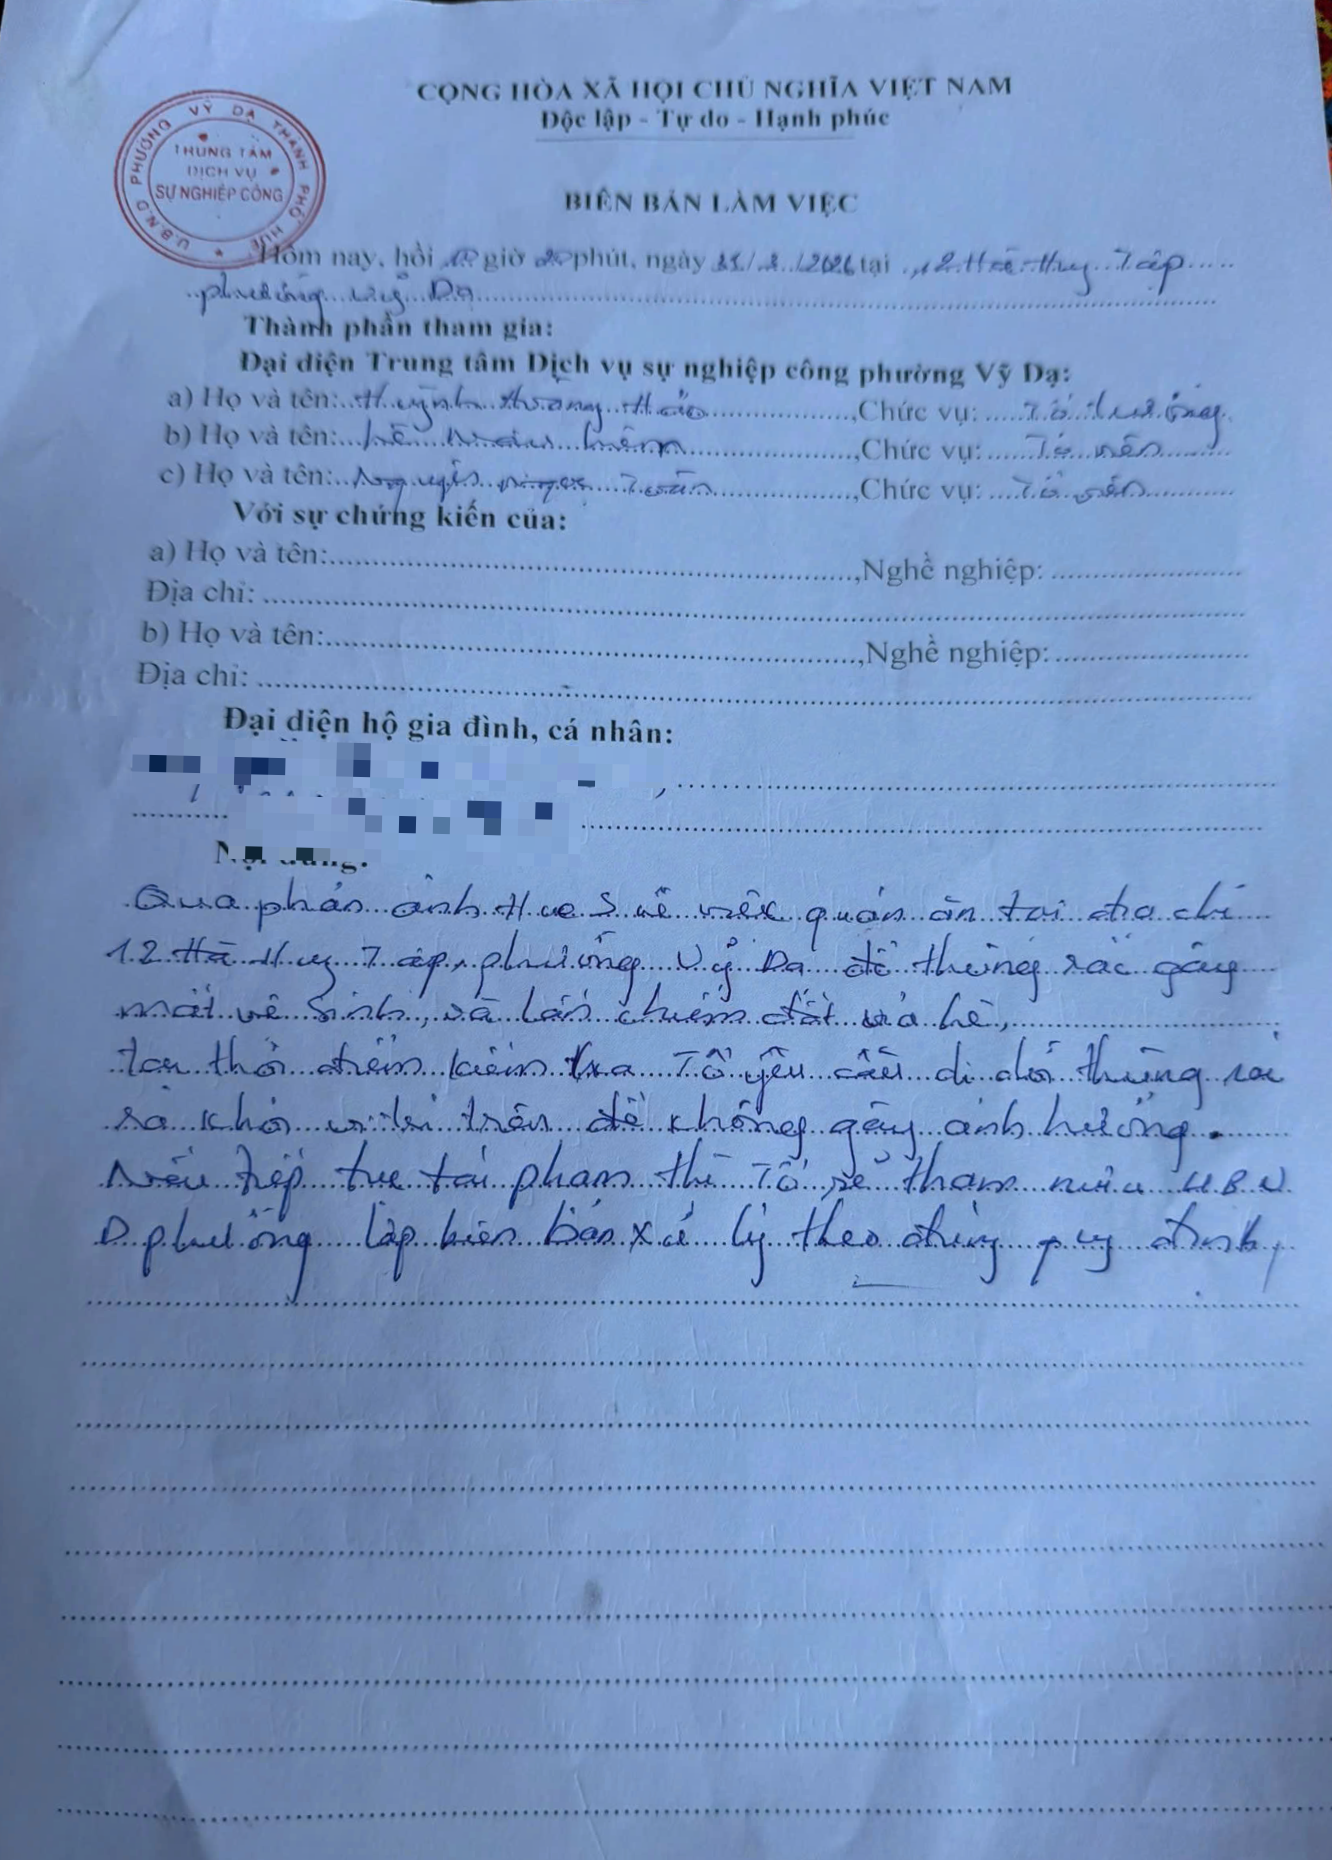 CỘNG HÒA XÃ HỘI CHỦ NGHĨA VIỆT NAM
Độc lập - Tự do - Hạnh phúc
U.B.N.D PHƯỜNG VỸ DẠ THÀNH PHỐ HUẾ
TRUNG TÂM
DỊCH VỤ
SỰ NGHIỆP CÔNG
BIÊN BẢN LÀM VIỆC
Hôm nay, hồi giờ 20 phút, ngày /2026 tại 12 Hà Huy Tập
phường Vỹ Dạ
Thành phần tham gia:
Đại diện Trung tâm Dịch vụ sự nghiệp công phường Vỹ Dạ:
a) Họ và tên: Huỳnh Hảo, Chức vụ: Tổ trưởng
b) Họ và tên: Lê, Chức vụ: Tổ viên
c) Họ và tên: Nguyễn Ngọc Tuấn, Chức vụ: Tổ viên
Với sự chứng kiến của:
a) Họ và tên:, Nghề nghiệp:
Địa chỉ:
b) Họ và tên:, Nghề nghiệp:
Địa chỉ:
Đại diện hộ gia đình, cá nhân:
Nội dung:
Qua phản ánh Hue S về việc quán ăn tại địa chỉ
12 Hà Huy Tập, phường Vỹ Dạ để thùng rác gây
mất vệ sinh, và lấn chiếm đất vỉa hè,
tại thời điểm kiểm tra Tổ yêu cầu di dời thùng rác
ra khỏi vị trí trên để không gây ảnh hưởng.
Nếu tiếp tục tái phạm thì Tổ sẽ tham mưu U.B.N.
D phường lập biên bản xử lý theo đúng quy định,